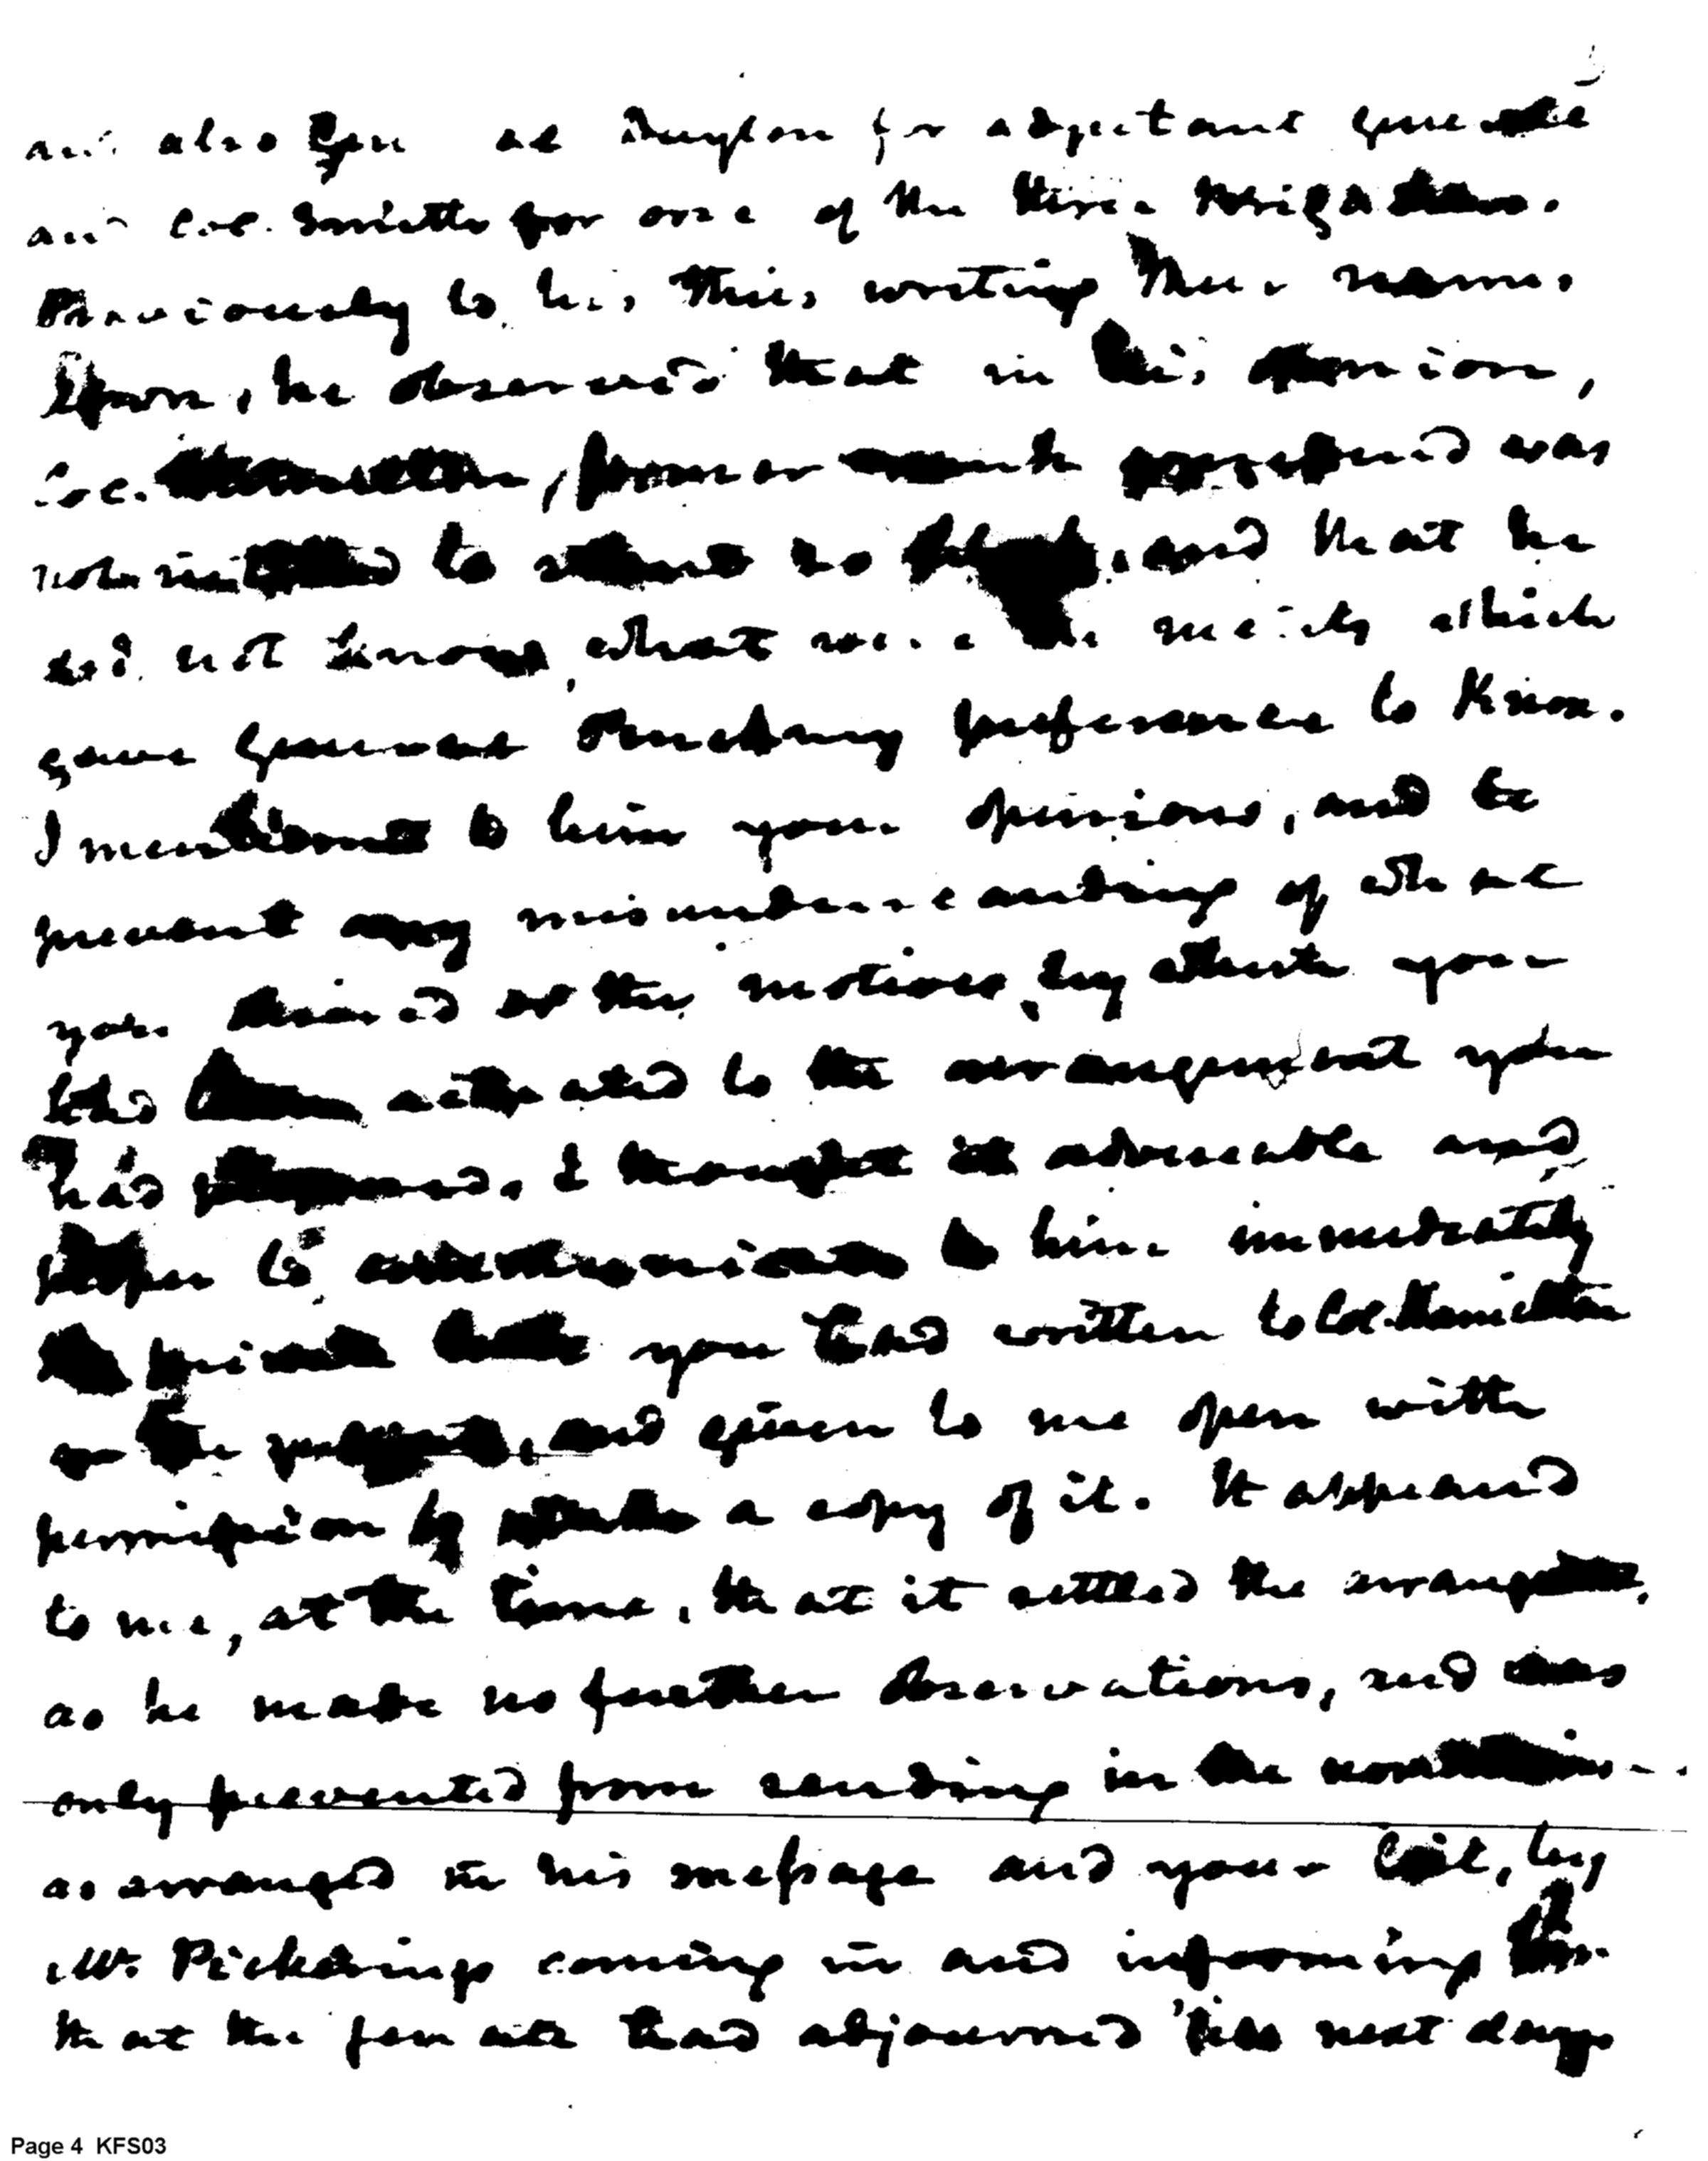 and also Gen al Dayton for adjutant general
and Col. Smith for one of the three brigadiers.
Previously to his thus writing these names
down, he observed that in his opinion,
Col. Hamilton, former rank considered was
not entitled to stand so high, and that he
did not know, what were the merits which
gave general Hamilton preference to Knox.
I mentioned to him your opinions, and to
prevent any misunderstanding of what
you desired or the motives, by which you
had been actuated to the arrangement you
had proposed, I thought it adviseable and
proper to communicate to him immediately
the private letter you had written to Col. Hamilton
on the subject, and given to me open with
permission to take a copy of it. It appeared
to me, at the time, that it settled the arrangement,
as he made no further observations, and was
only prevented from sending in the nominations
as arranged in his message and your list, by
Mr. Pickering coming in and informing him
that the senate had adjourned 'till next day
Page 4 KFS03